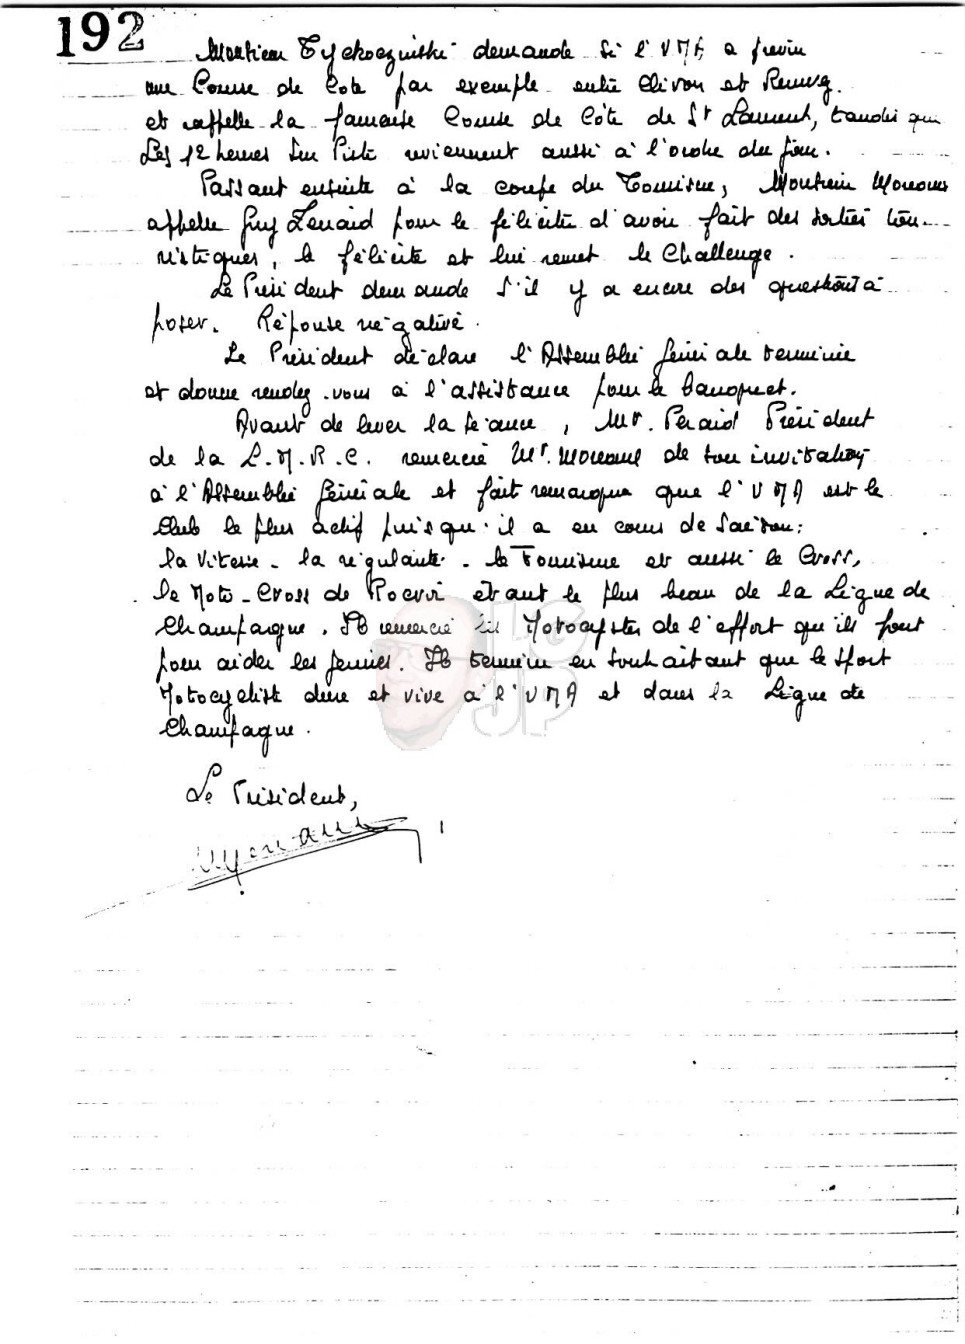 192
Monsieur Tyckoczinski demande si l'UMA a prévu
une Course de Cote par exemple entre Elivon et Renwez
et rappelle la fameuse Course de Côte de St Laurent, tandis que
Les 12 heures sur Piste reviennent aussi à l'ordre du jour.
Passant ensuite à la coupe du Tourisme, Monsieur Moreaux
appelle Guy Lenaid pour le féliciter d'avoir fait des sorties tou-
ristiques, le félicite et lui remet le Challenge.
Le Président demande s'il y a encore des questions à
poser. Réponse négative.
Le Président déclare l'Assemblée Générale terminée
et donne rendez-vous à l'assistance pour le banquet.
Avant de lever la séance, Mr. Peraid Président
de la L.M.R.C. remercie Mr. Moreaux de son invitation
à l'Assemblée Générale et fait remarquer que l'UMA est le
Club le plus actif puisqu'il a en cours de saison:
la Vitesse - la régularité - le Tourisme et aussi le Cross,
le Moto-Cross de Rocroi étant le plus beau de la Ligue de
Champagne. Il remercie les Motocystes de l'effort qu'ils font
pour aider les jeunes. Il termine en souhaitant que le Sport
Motocycliste dure et vive à l'UMA et dans la Ligue de
Champagne.
LG
JP
Le Président,